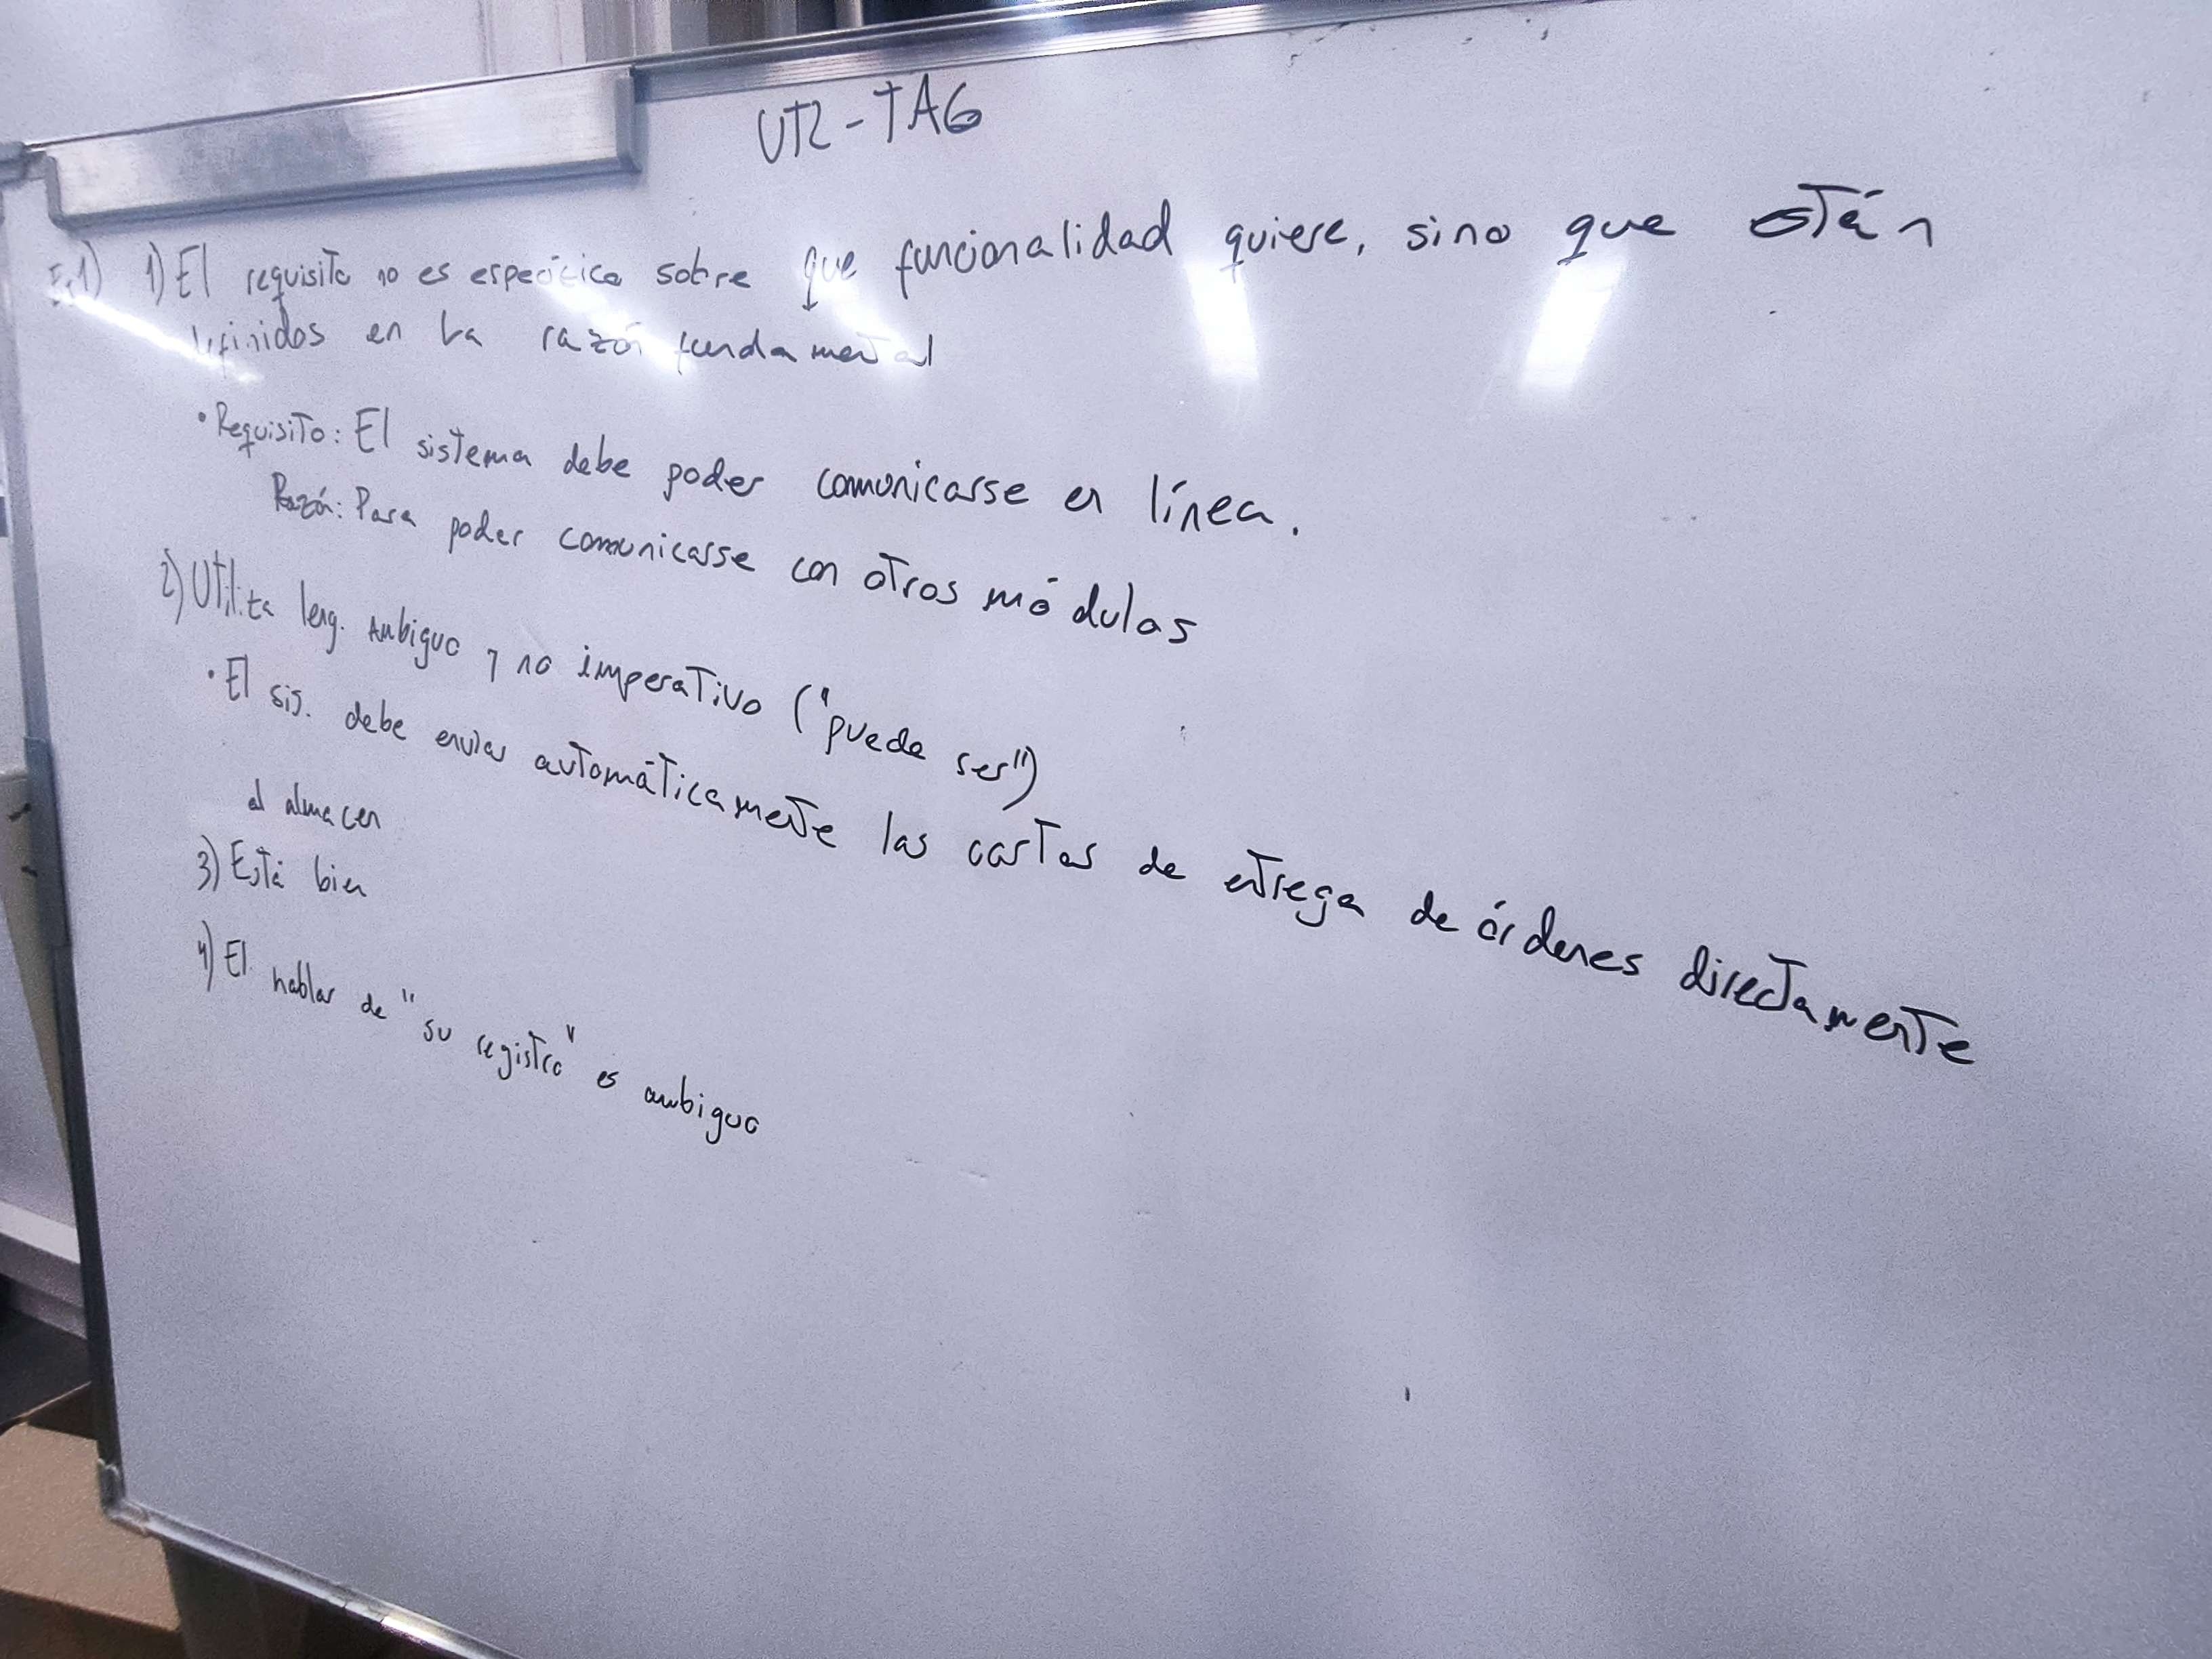 UT2-TA6
Ej1) 1) El requisito no es específico sobre que funcionalidad quiere, sino que están
definidos en la razón fundamental
• Requisito: El sistema debe poder comunicarse en línea.
Razón: Para poder comunicarse con otros módulos
2) Utiliza leng. ambiguo y no imperativo ("puede ser")
• El sis. debe enviar automáticamente las cartas de entrega de órdenes directamente
al almacen
3) Está bien
4) El hablar de "su registro" es ambiguo